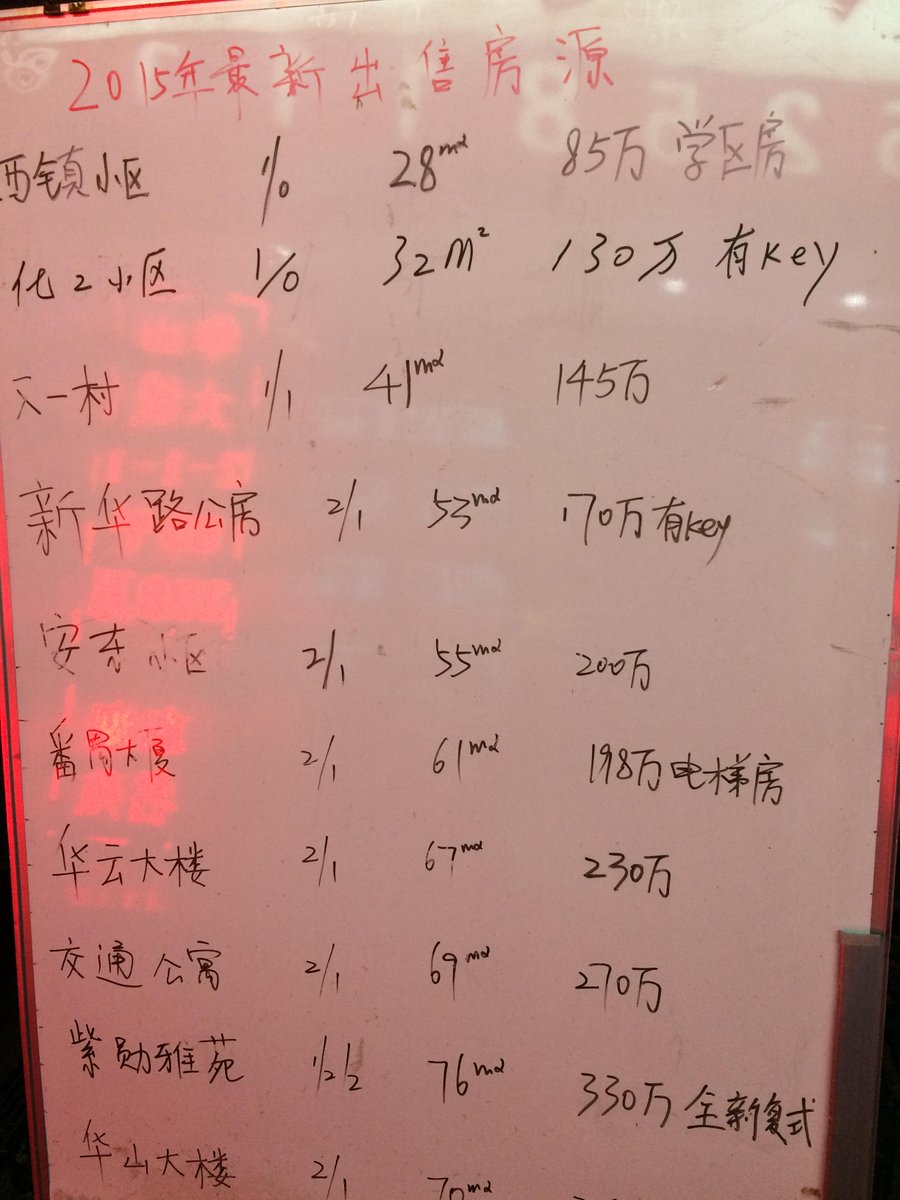 2015年最新出售房源
西镇小区 1/0 28m² 85万 学区房
化2小区 1/0 32m² 130万 有key
天一村 1/1 41m² 145万
新华路公房 2/1 53m² 170万有key
安东小区 2/1 55m² 200万
番禺大厦 2/1 61m² 198万电梯房
华云大楼 2/1 67m² 230万
交通公寓 2/1 69m² 270万
紫勋雅苑 1/2/2 76m² 330万 全新复式
华山大楼 2/1 70m²